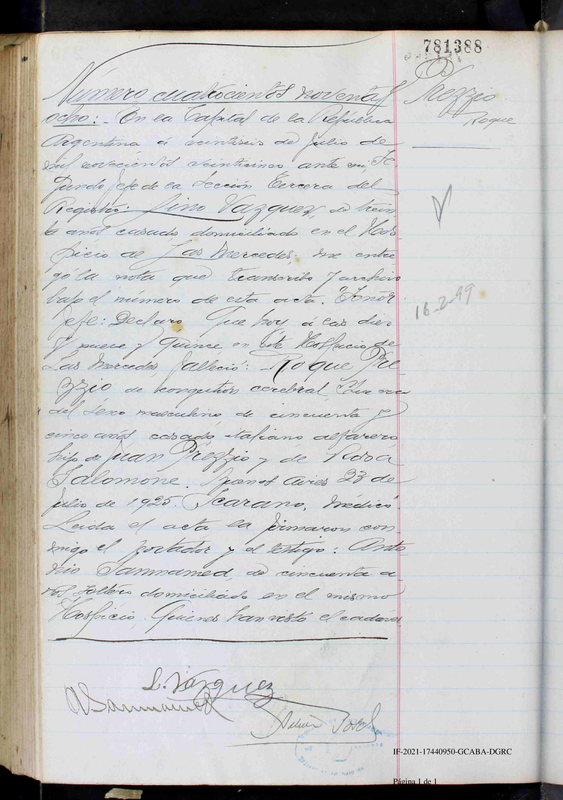 781388
Prezzio
Roque
Número cuatrocientos noventa y
ocho: En la Capital de la República
Argentina á veintiseis de julio de
mil novecientos veinticinco ante mi, Se
gundo Jefe de la Sección Tercera del
Registro: Lino Vazquez, de trein
ta años casado domiciliado en el Hos
picio de Las Mercedes; me entre
gó la nota que transcribo y archivo
bajo el número de esta acta. Señor
Jefe: Declaro Que hoy á las diez
y nueve y quince en este Hospicio de
Las Mercedes falleció: Roque Pre
zzio de congestion cerebral, Que era
del sexo masculino de cincuenta y
cinco años, casado italiano alfarero
hijo de Juan Prezzio y de Rosa
Salomone. Buenos Aires 23 de
julio de 1925. Scarano. Médico.
Leida el acta la firmaron con
migo el portador y el testigo: Anto
nio Sanmamed, de cincuenta a
ños soltero domiciliado en el mismo
Hospicio. Quienes han visto el cadaver
16-2-99
L. Vázquez
A Sanmamed
IF-2021-17440950-GCABA-DGRC
Página 1 de 1